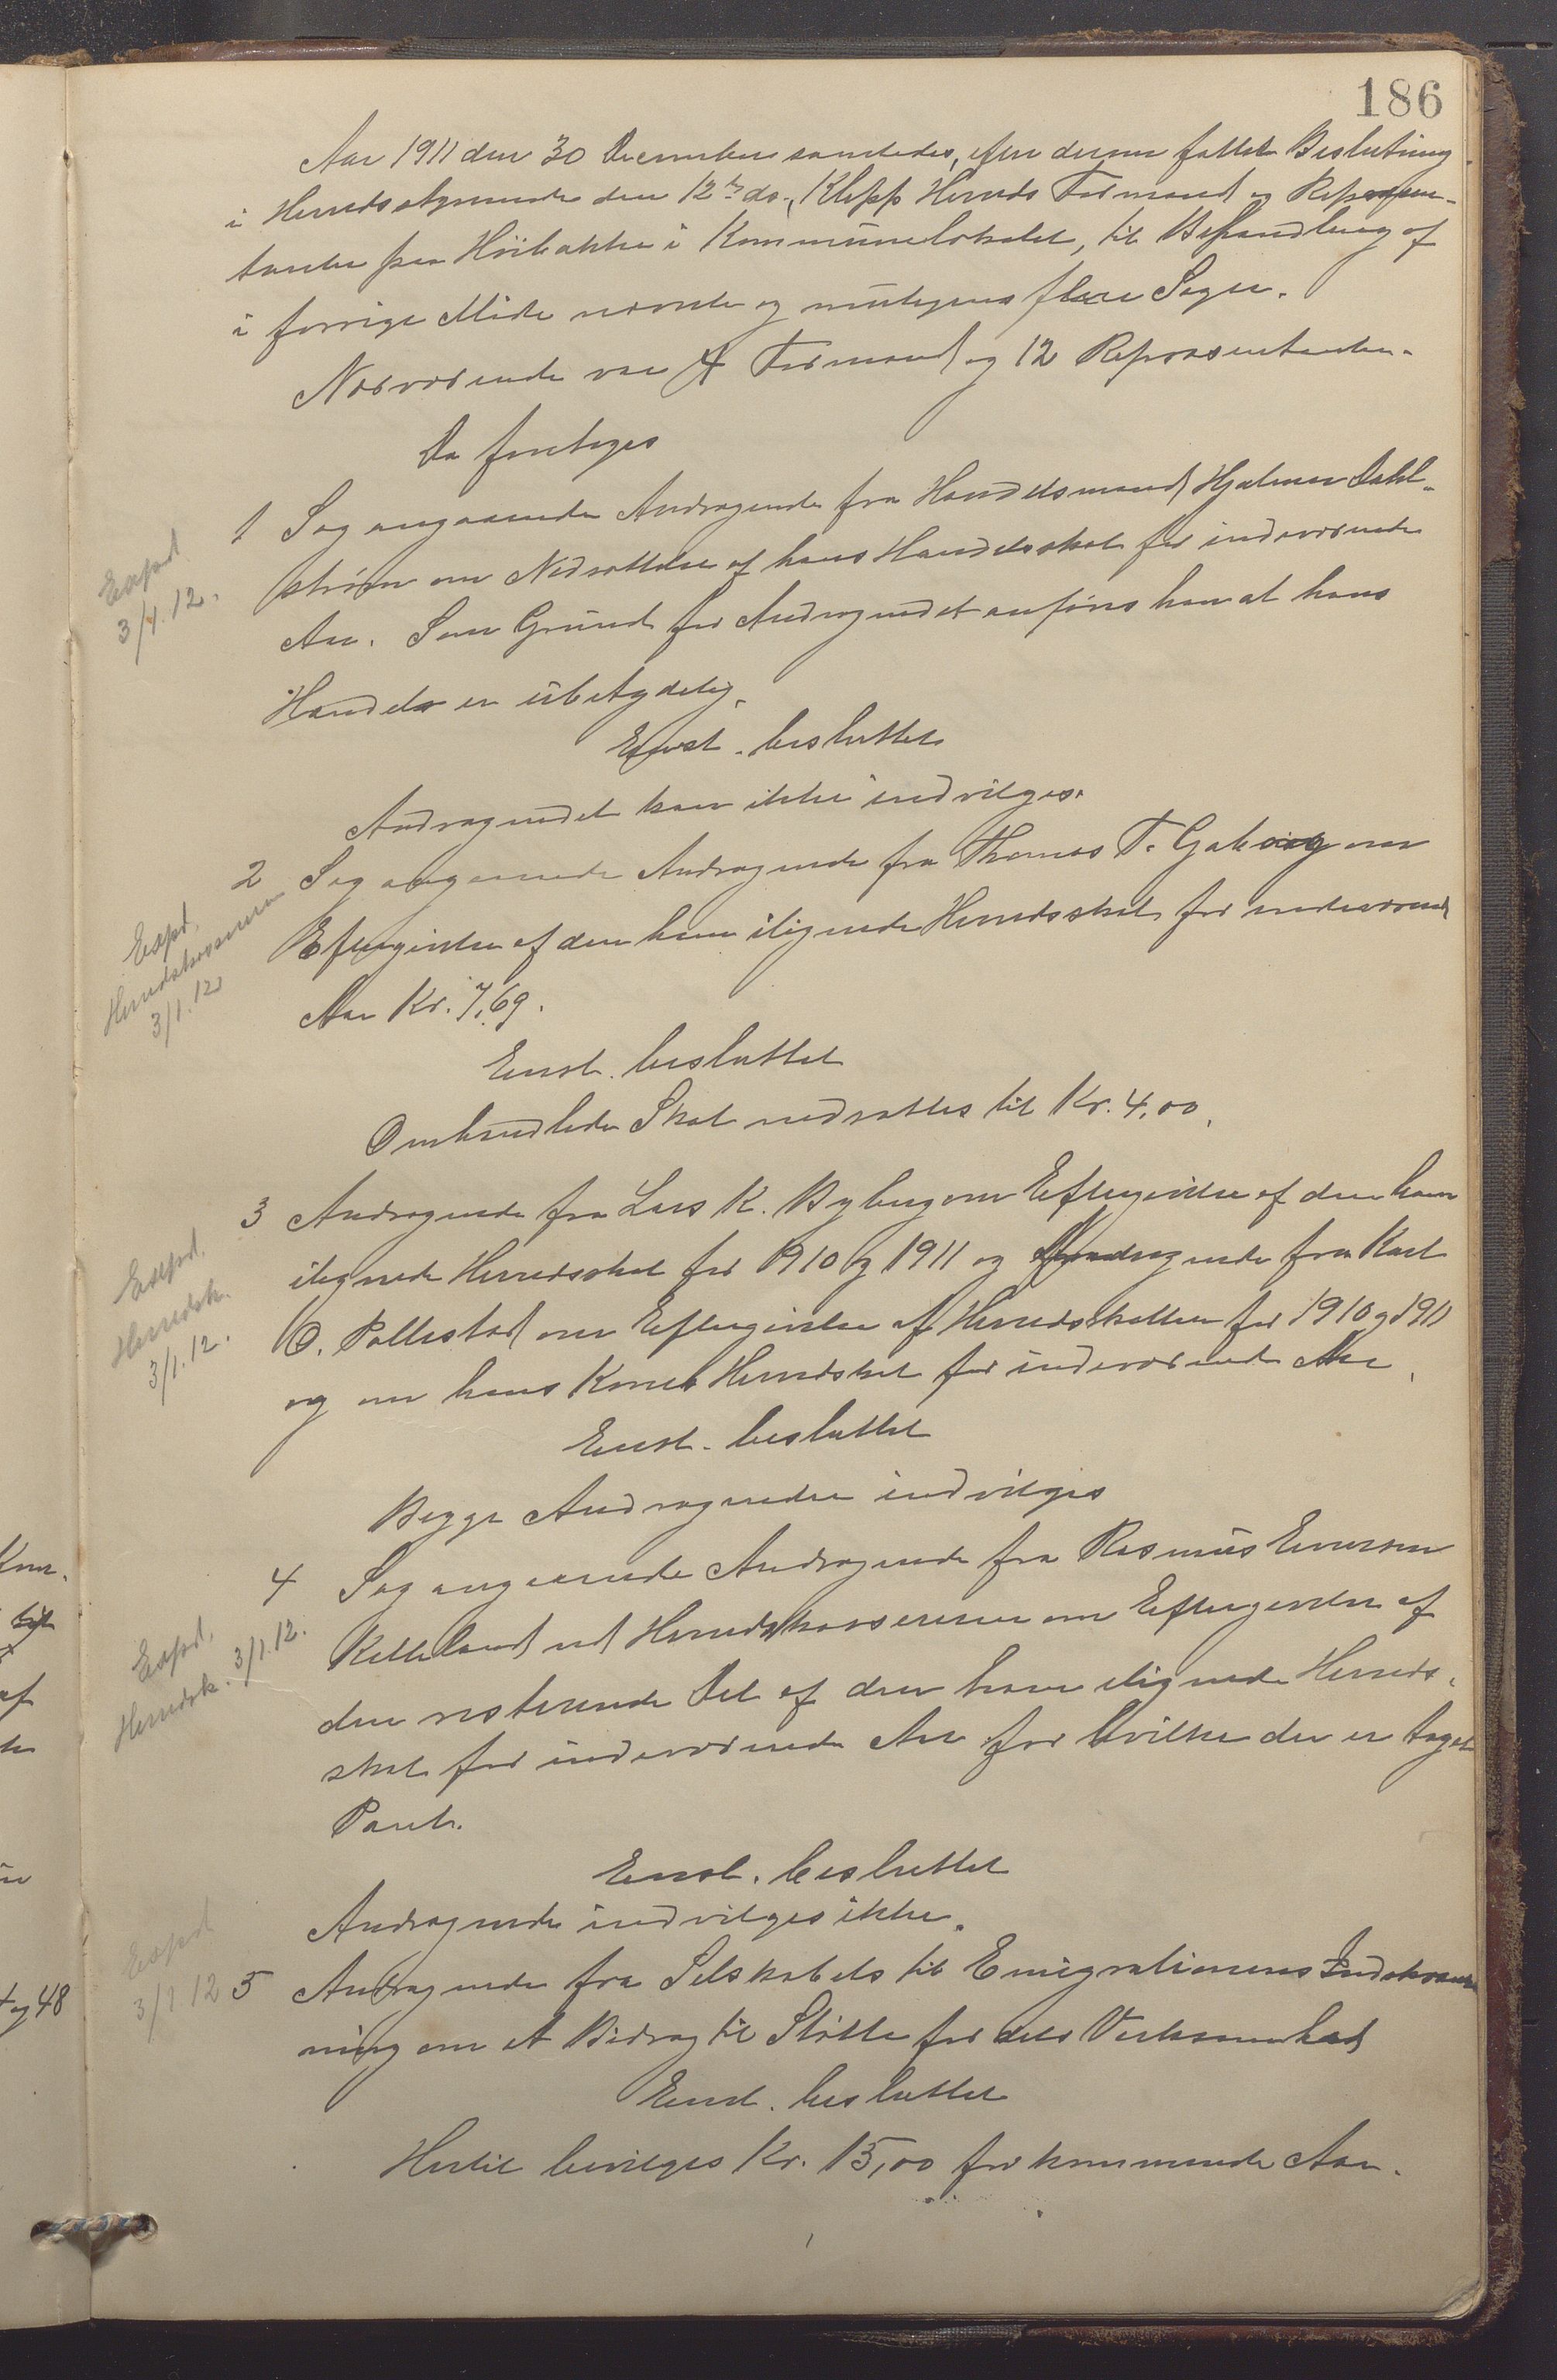 186
Aar 1911 den 30 December samledes, efter derom fattet Beslutning
i Herredsstyremøde den 12te ds., Klepp Herreds Formænd og Repræsen-
tanter paa Hørbakke i Kommunelokalet, til Behandling af
i forrige Møde nævnte og muligens flere Sager.
Nærværende var 4 Formænd og 12 Repræsentanter.
Da foretoges
Expd
3/1.12.
1 Sag angaaende Andragende fra Handelsmand Hjalmar Dahl-
strøm om Nedsættelse af hans Handelsskat for indeværende
Aar. Som Grund for Andragendet anføres han at hans
Handel er ubetydelig.
Enst. besluttet
Andragendet kan ikke indvilges.
Expd.
Herredskassereren
3/1.12
2 Sag angaaende Andragende fra Thomas T. om
Eftergivelse af den ham ilignede Herredsskat for indeværende
Aar Kr. 7,69.
Enst. besluttet
Omhandlede Skat nedsættes til Kr. 4,00.
Expd.
Herredsk.
3/1.12.
3 Andragende fra Lars K. Byberg om Eftergivelse af den ham
ilignede Herredsskat for 1910 og 1911 og Andragende fra Karl
O. Pollestad om Eftergivelse af Herredsskatten for 1910 og 1911
og om hans Kones Herredskat for indeværende Aar.
Enst. besluttet
Begge Andragender indvilges
Expd.
Herredsk. 3/1.12.
4 Sag angaaende Andragende fra Rasmus Enersen
Kalleland ved Herredskassereren om Eftergivelse af
den resterende Del af den ham ilignede Herreds-
skat for indeværende Aar for hvilken der er taget
Pant.
Enst. besluttet
Andragende indvilges ikke.
Expd
3/1 12
5 Andragende fra Selskabets til Emigrationens Indskrænk-
ning om et Bidrag til Støtte for dets Virksomhed
Enst. besluttet
Hertil bevilges Kr. 15,00 for kommende Aar.
af
og 48